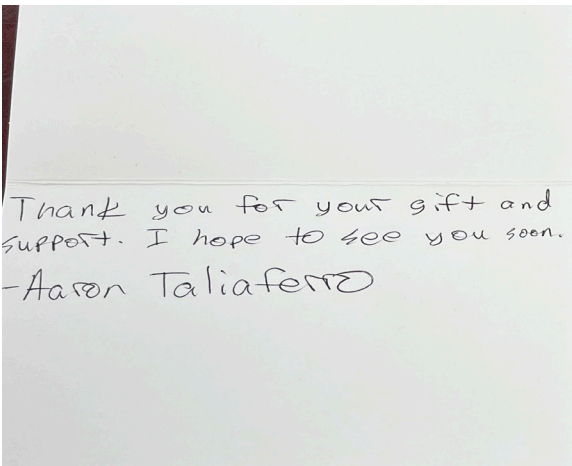 Thank you for your gift and
support. I hope to see you soon.
-Aaron Taliaferro